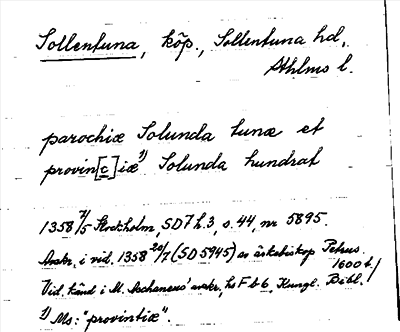 Sollentuna, köp., Sollentuna hd,
Sthlms l.
parochiæ Solunda tunæ et
provin[c]iæ 1) Solunda hundrat
1358 7/5 Stockholm, SD 7 h. 3, s. 44, nr 5895.
Avskr. i vid. 1358 20/7 (SD 5945) av ärkebiskop Petrus.
1600 t./
Vid. känd i M. Aschaneus' avskr., hs F b 6, Kungl. Bibl.
1) Ms: "provintiæ".